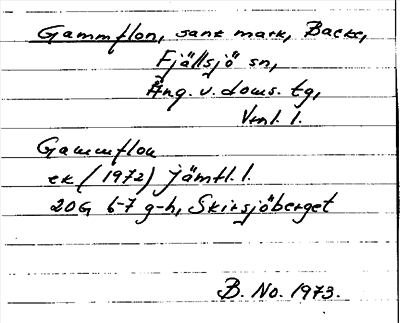 Gammflon, sank mark, Backe,
Fjällsjö sn,
Äng. v. doms. tg,
Vrnl. l.
Gammflon
ek (1972) Jämtl. l.
20G 6-7 g-h, Skirsjöberget
B. No. 1973.